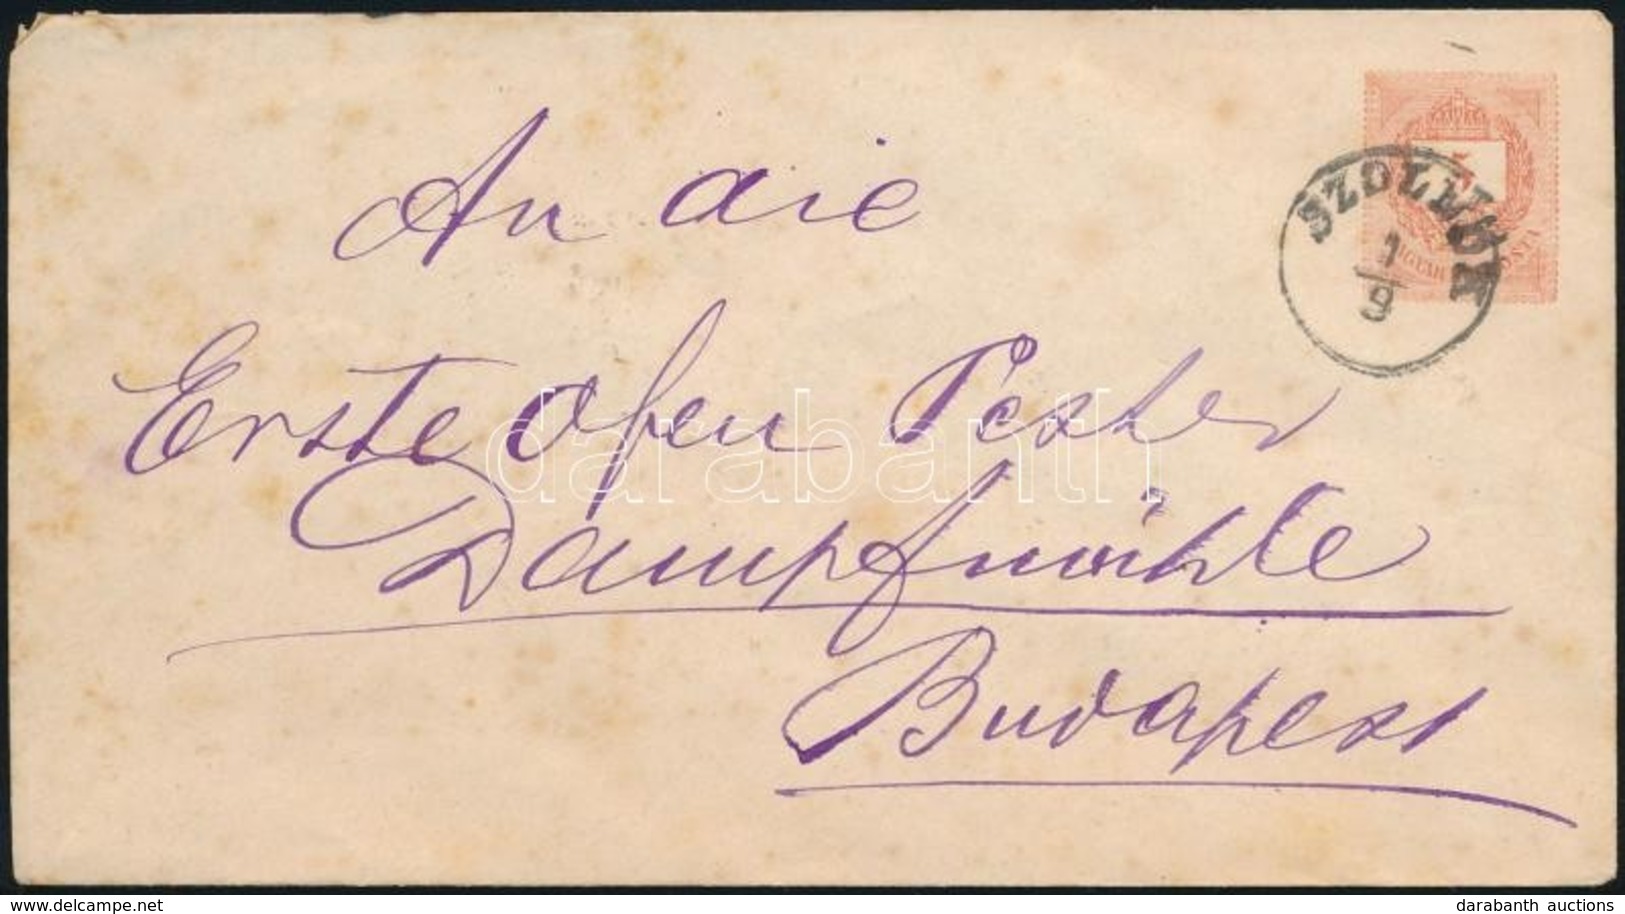 An die
Erste Ofen Pester
Dampfmühle
Budapest
SZOLNOK
1/9
5
MAGYAR POSTA
darabanth
www.delcampe.net
darabanth auctions